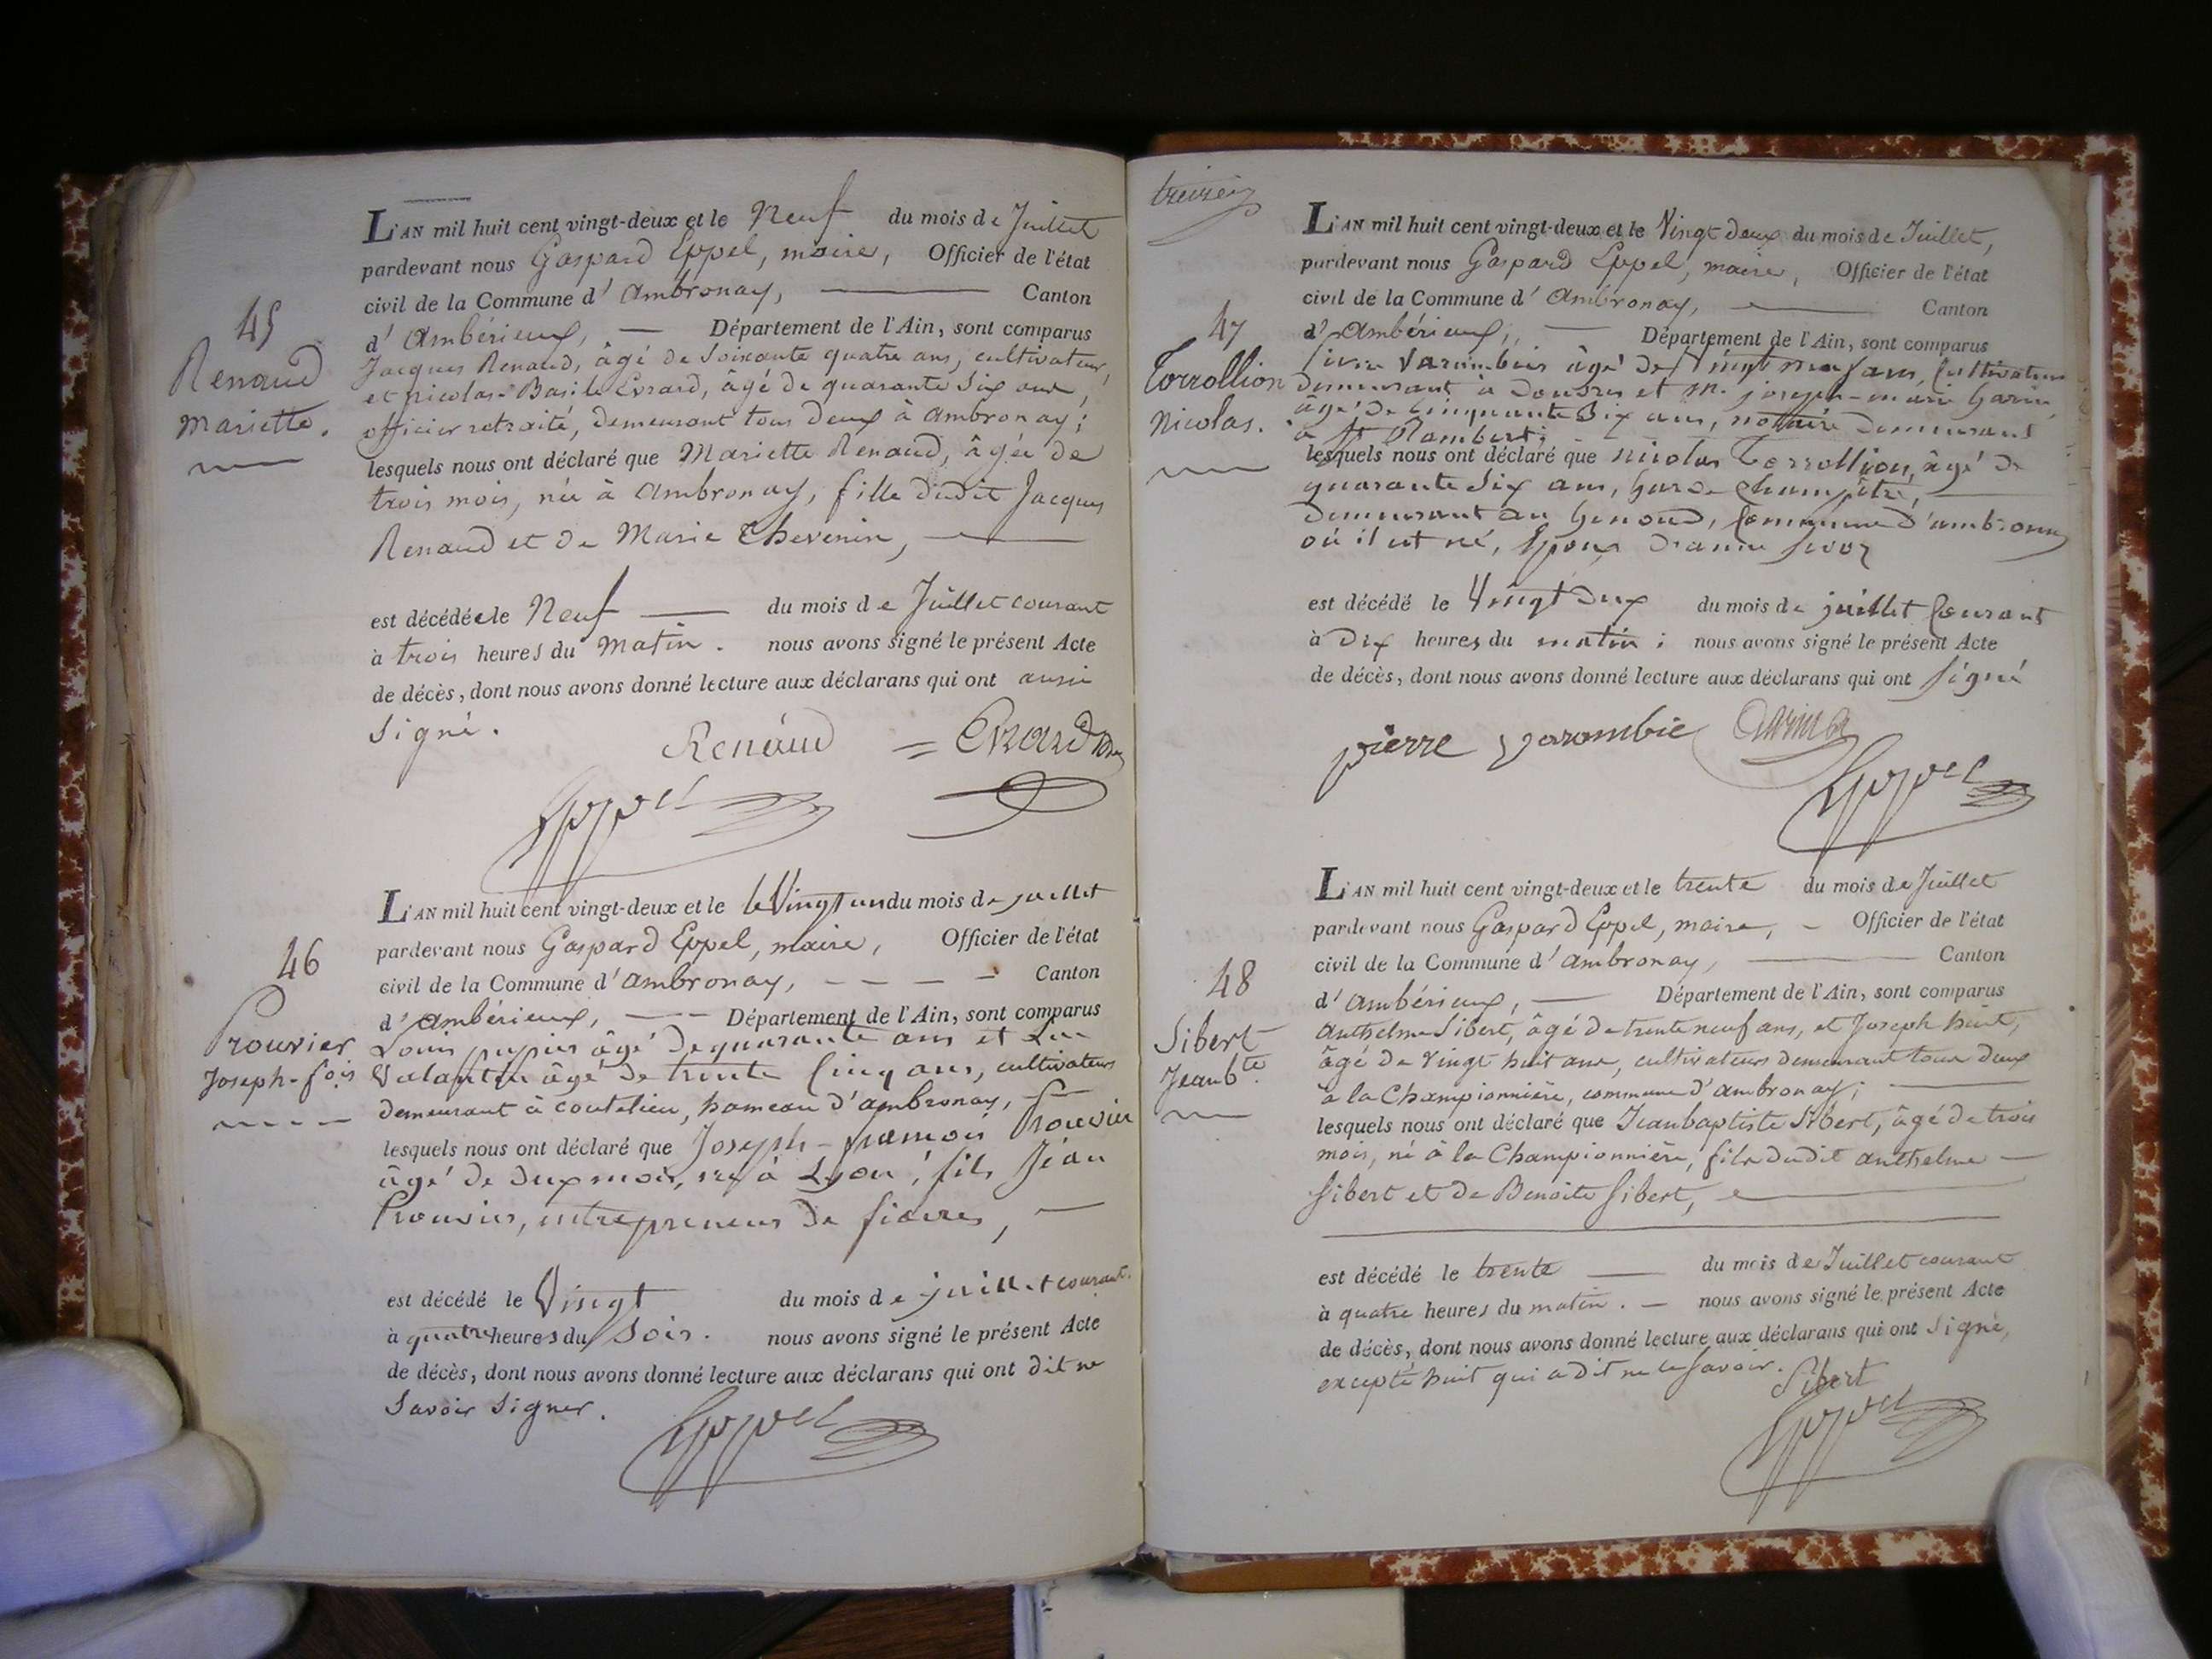 L'AN mil huit cent vingt-deux et le Neuf du mois de Juillet
pardevant nous Gaspard Eppel, maire, Officier de l'état
civil de la Commune d'Ambronay, Canton
d'Ambérieux, Département de l'Ain, sont comparus
45
Renaud
Mariette.
Jacques Renaud, âgé de soixante quatre ans, cultivateur,
et Nicolas-Basile Evrard, âgé de quarante six ans,
officier retraité, demeurant tous deux à Ambronay;
lesquels nous ont déclaré que Mariette Renaud, âgée de
trois mois, née à Ambronay, fille dudit Jacques
Renaud et de Marie Chevenin,
est décédée le Neuf du mois de Juillet courant
à trois heures du matin. nous avons signé le présent Acte
de décès, dont nous avons donné lecture aux déclarans qui ont aussi
signé.
Renaud = Evrard
Eppel
L'AN mil huit cent vingt-deux et le le Vingt un du mois de juillet
pardevant nous Gaspard Eppel, maire, Officier de l'état
civil de la Commune d'Ambronay, Canton
d'Ambérieux, Département de l'Ain, sont comparus
46
Prouvier
Joseph-fois
Louis pupier âgé de quarante ans et
Valantin âgé de trente cinq ans, cultivateurs
demeurant à coutelieu, hameau d'ambronay,
lesquels nous ont déclaré que Joseph-francois Prouvier
âgé de deux mois, né à Lyon, fils Jéan
Prouvier, entrepreneur de fiacres,
est décédé le Vingt du mois de juillet courant.
à quatre heures du soir. nous avons signé le présent Acte
de décès, dont nous avons donné lecture aux déclarans qui ont dit ne
savoir signer.
Eppel
treize
L'AN mil huit cent vingt-deux et le Vingt Deux du mois de Juillet,
pardevant nous Gaspard Eppel, maire, Officier de l'état
civil de la Commune d'Ambronay, Canton
d'Ambérieux, Département de l'Ain, sont comparus
47
Torrollion
Nicolas.
pierre Varambier âgé de Vingt neuf ans, Cultivateur
demeurant à Douvres et M. joseph-marie Garin,
âgé de Cinquante Six ans, notaire demeurant
à St Rambert;
lesquels nous ont déclaré que nicolas Torrollion, âgé de
quarante Six ans, Garde Champêtre,
demeurant au Genoud, Commune d'ambronay
où il est né, Epoux d'anne
est décédé le Vingt deux du mois de juillet Courant
à Dix heures du matin; nous avons signé le présent Acte
de décès, dont nous avons donné lecture aux déclarans qui ont Signé
pierre varambie Garin
Eppel
L'AN mil huit cent vingt-deux et le trente du mois de Juillet
pardevant nous Gaspard Eppel, maire, Officier de l'état
civil de la Commune d'Ambronay, Canton
d'Ambérieux, Département de l'Ain, sont comparus
48
Sibert
Jean bte.
Anthelme Sibert, âgé de trente neuf ans, et Joseph huit,
âgé de Vingt huit ans, cultivateurs demeurant tous deux
à la Championnière, commune d'ambronay;
lesquels nous ont déclaré que Jean baptiste Sibert, âgé de trois
mois, né à la Championnière, fils dudit anthelme
Sibert et de Benoite Sibert,
est décédé le trente du mois de Juillet courant
à quatre heures du matin. nous avons signé le présent Acte
de décès, dont nous avons donné lecture aux déclarans qui ont signé,
excepté huit qui a dit ne le savoir. Sibert
Eppel